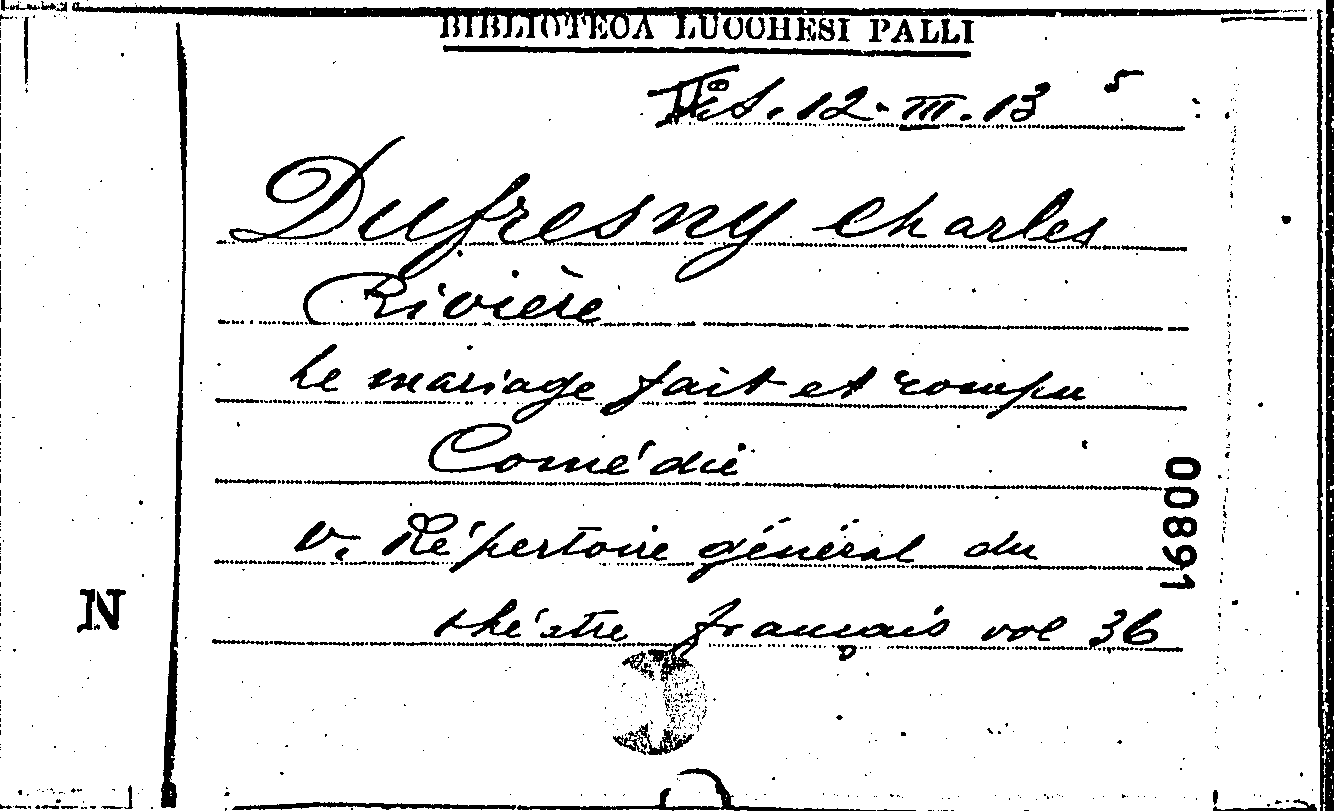 BIBLIOTECA LUCCHESI PALLI
12. III. 13 5
Dufresny Charles
Rivière
Le mariage fait et rompu
Comédie
v. Répertoire général du
théâtre français vol 36
00891
N